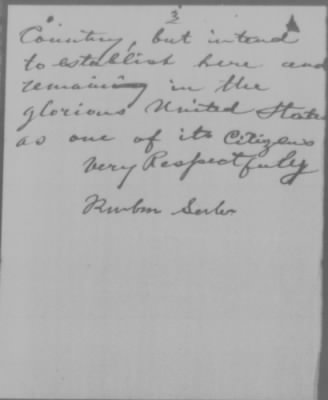 3
Country, but intend
to establish here and
remaining in the
glorious United States
as one of its Citizens
very Respectfully